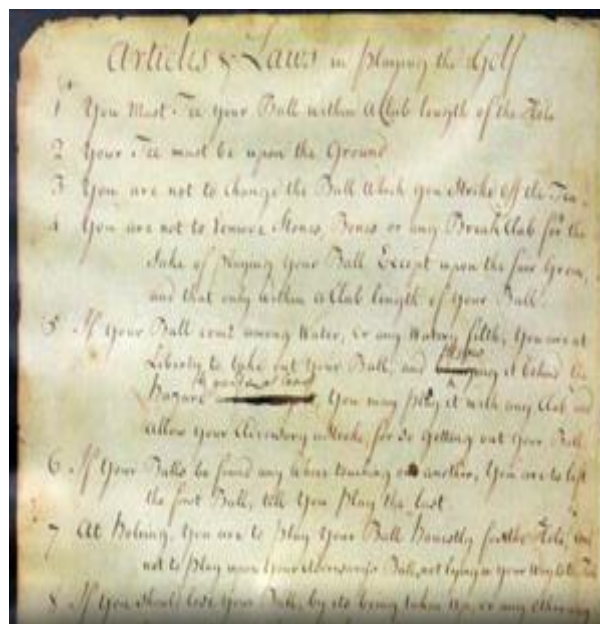 Articles & Laws in playing the Golf
1 You Must Tee your Ball within a Club length of the Hole
2 Your Tee must be upon the Ground
3 You are not to Change the Ball which you Strike off the Tee
4 You are not to Remove Stones, Bones or any Break Club for the
Sake of playing your Ball Except upon the fair Green,
and that only within a Club length of your Ball
5 If your Ball come among Water, or any Watery filth, You are at
Liberty to take out Your Ball, and it behind the
Hazard You may play it with any Club and
allow your Adversary a Stroke, for so getting out your Ball
6 If your Balls be found any where touching one another, You are to lift
the first Ball, till You play the last
7 At Holeing, You are to play Your Ball Honestly for the Hole, and
not to play upon Your Adversary's Ball, not lying in your Way to the
8 If You should lose Your Ball, by its being taken up, or any other way